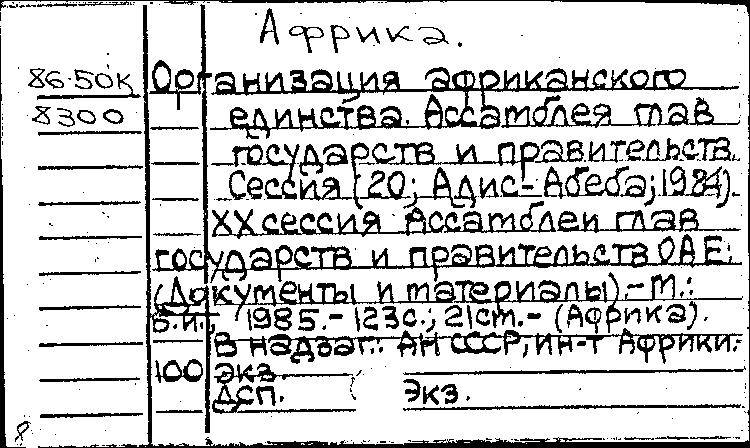 Африка.
86-50К Организация африканского
8300 единства. Ассамблея глав
государств и правительств.
Сессия (20; Адис-Абеба; 1984).
XX сессия Ассамблеи глав
государств и правительств ОАЕ:
(Документы и материалы).- М.:
Б.и., 1985.- 123с.; 21см.- (Африка).
В надзаг.: АН СССР, ин-т Африки.-
100 экз.
ДСП. Экз.
8